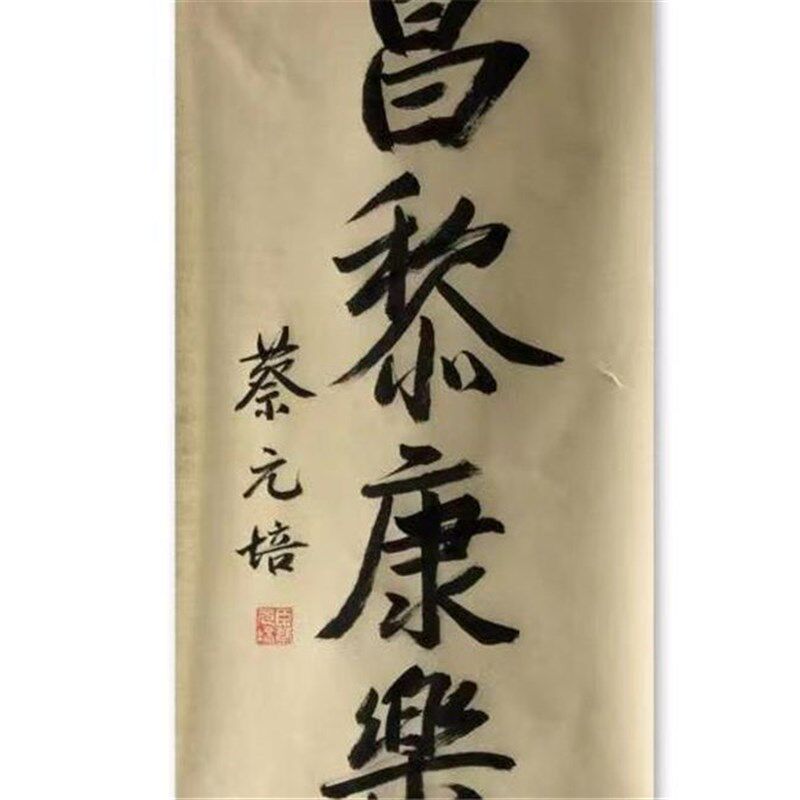 昌黎康樂
蔡元培